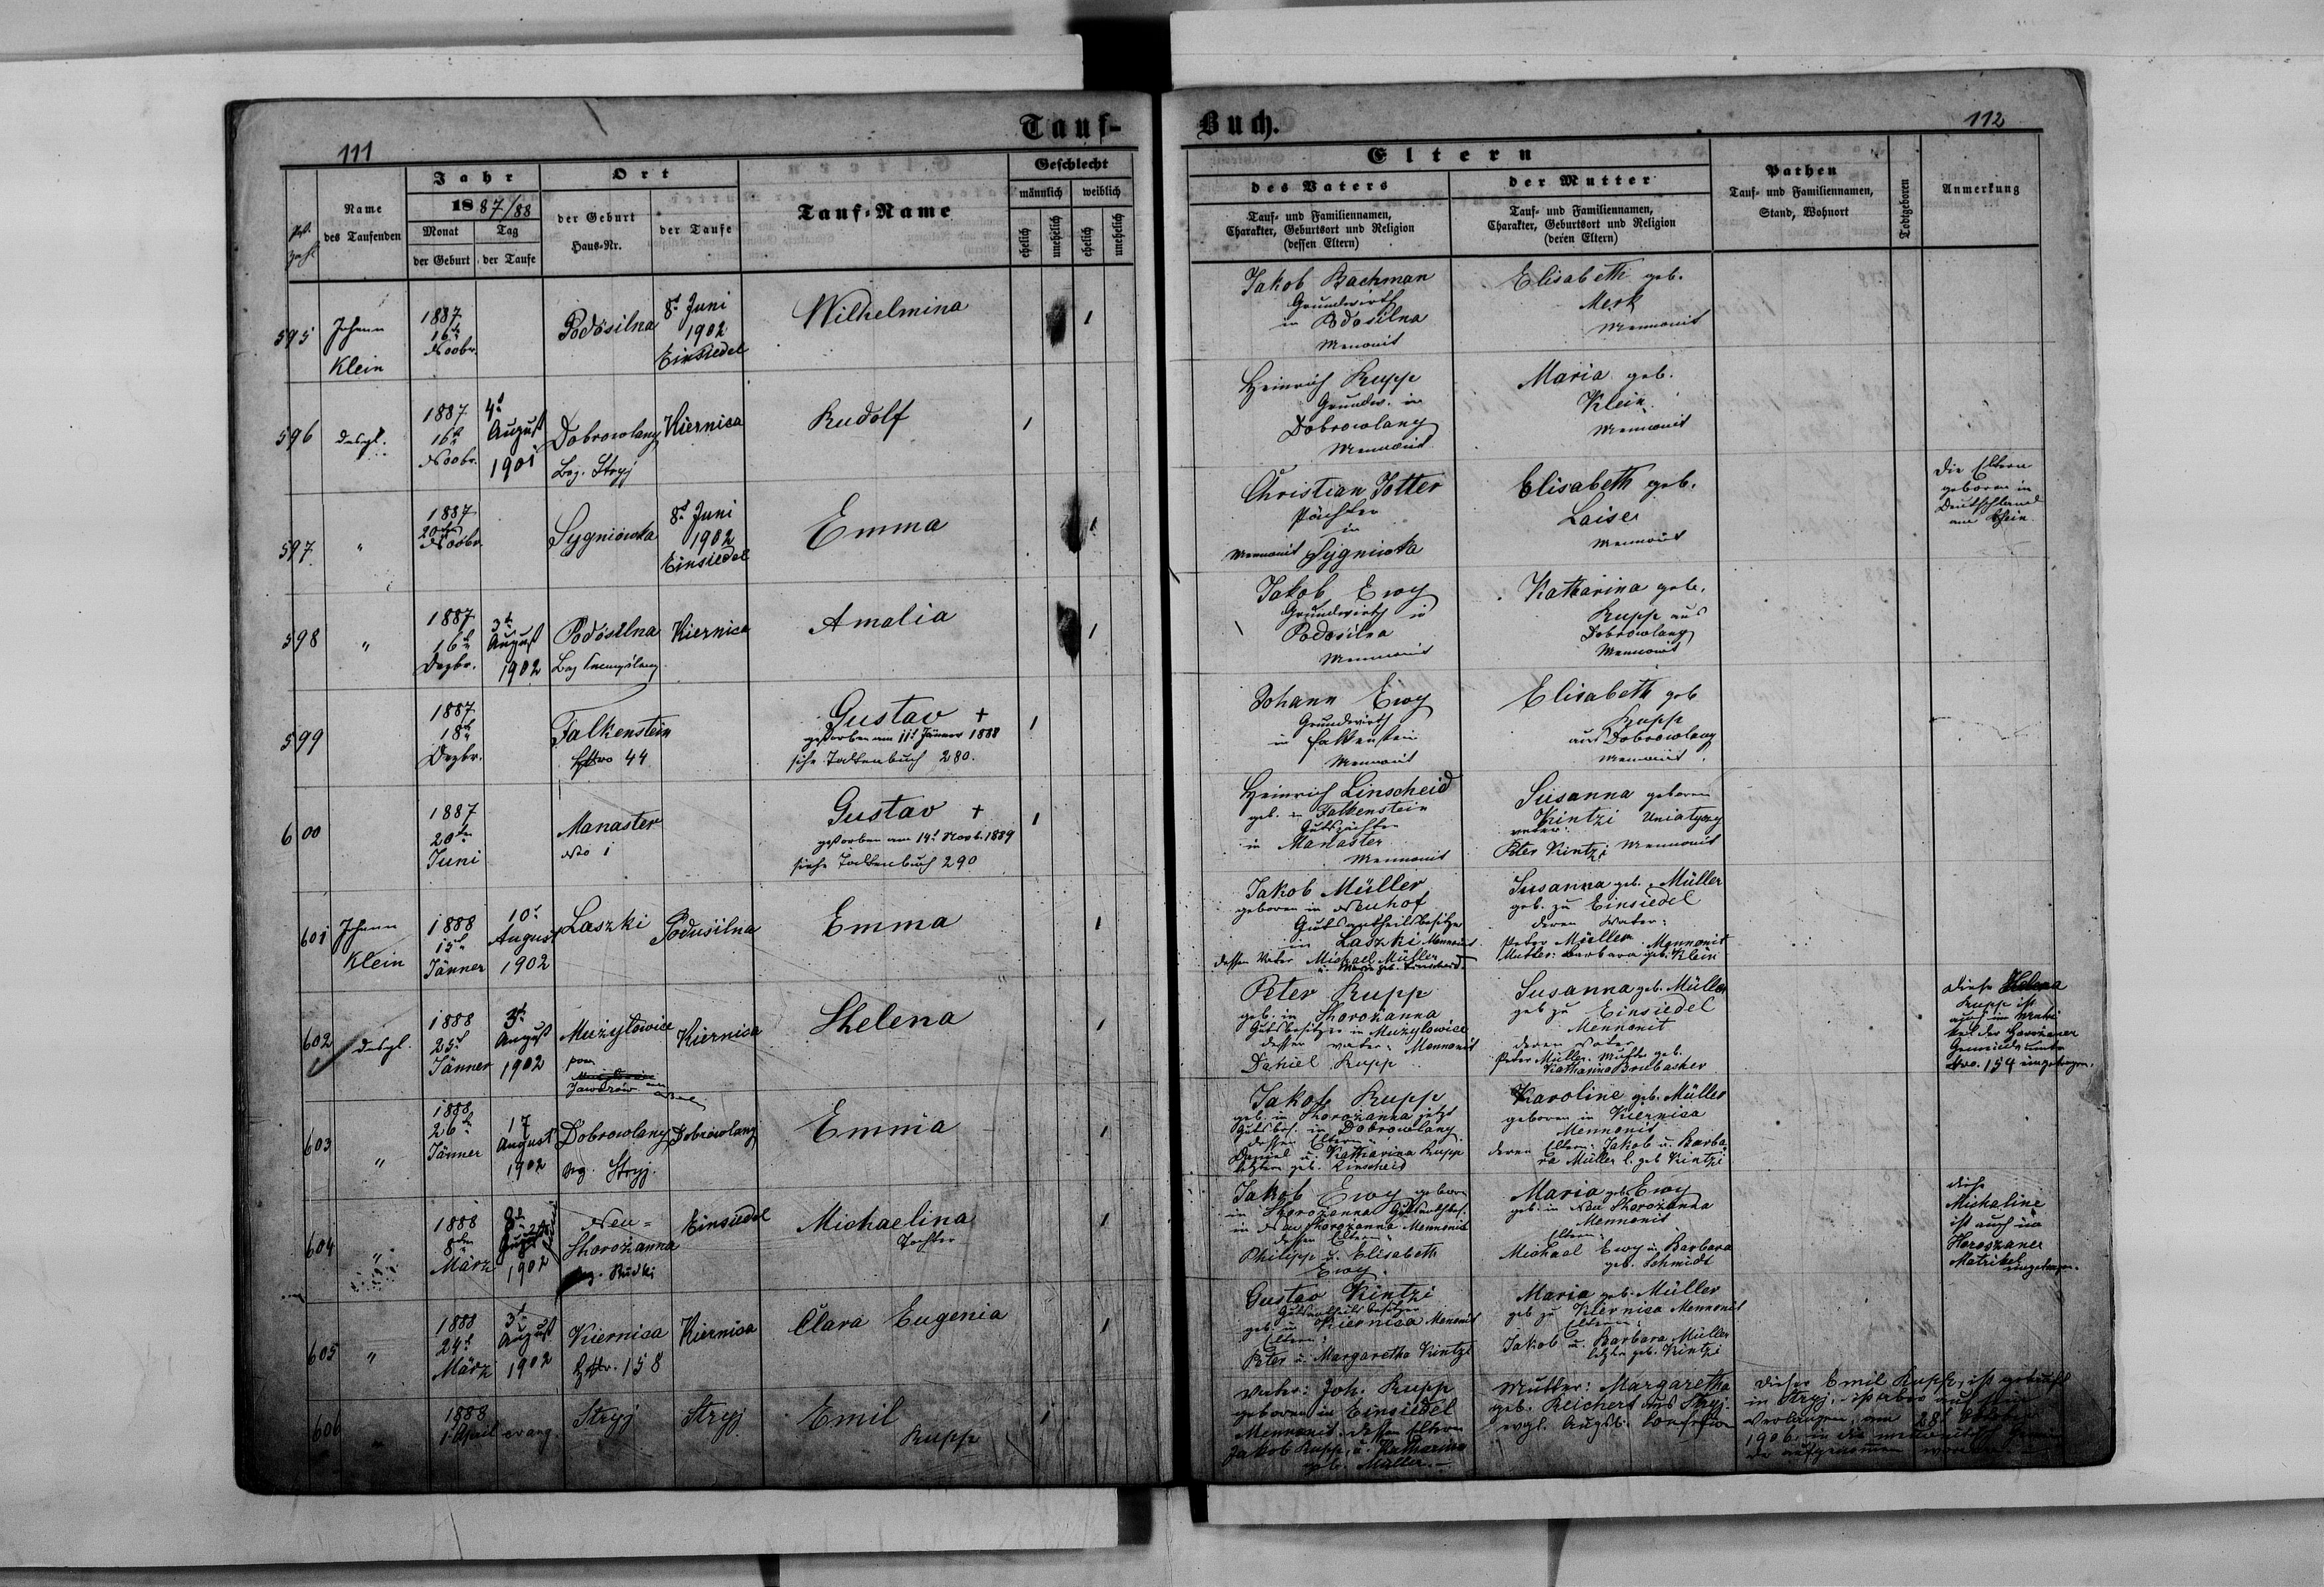 Tauf-
111
Post. Zahl
Name
des Taufenden
Jahr
1887/88
Monat
Tag
der Geburt
der Taufe
Ort
der Geburt
Haus-Nr.
der Taufe
Tauf-Name
Geschlecht
männlich
weiblich
ehelich
unehelich
ehelich
unehelich
595
Johann
Klein
1887
16t
Novbr.
Podósilna
8t Juni
1902
Einsiedel
Wilhelmina
1
596
desgl.
1887
16t
Novbr.
4t
August
1901
Dobrowlany
Bez. Stryj
Kiernica
Rudolf
1
597
"
1887
20ten
Novbr
Sygniówka
8t Juni
1902
Einsiedel
Emma
1
598
"
1887
16t
Dezbr.
3t
August
1902
Podósilna
Kiernica
Amalia
1
599
1887
18t
Dezbr.
Falkenstein
44
Gustav +
gestorben am 11t Jänner 1888
siehe Todtenbuch 280.
1
600
1887
20ten
Juni
Manaster
Nro 1
Gustav +
gestorben am 14t Novb. 1889
siehe Todtenbuch 290
1
601
Johann
Klein
1888
15t
Jänner
10t
August
1902
Laszki
Podusilna
Emma
1
602
desgl.
1888
25t
Jänner
3t
August
1902
Mużyłowice
Jaworów
Kiernica
Helena
1
603
"
1888
26t
Jänner
17
August
1902
Dobrowlany
Bez. Stryj.
Dobrowlany
Emma
1
604
"
1888
8ten
März
1902
Neu-
Chorożanna
Bez. Rudki
Einsiedel
Michaelina
Tochter
1
605
"
1888
24t
März
3t
August
1902
Kiernica
158
Kiernica
Clara Eugenia
1
606
"
1888
1 April
evang.
Stryj
Stryj
Emil
Rupp
1
Buch.
112
Eltern
des Vaters
Tauf- und Familiennamen,
Charakter, Geburtsort und Religion
(dessen Eltern)
der Mutter
Tauf- und Familiennamen,
Charakter, Geburtsort und Religion
(deren Eltern)
Pathen
Tauf- und Familiennamen,
Stand, Wohnort
Todtgeboren
Anmerkung
Jakob Bachman
Grundwirth
in Podosilna
Menonit
Elisabeth geb.
Merk
Mennonit
Heinrich Rupp
Grundw. in
Dobrowlany
Mennonit
Maria geb.
Klein
Mennonit
Christian Jotter
Pächter
in
Mennonit Sygniówka
Elisabeth geb.
Laise
Mennonit
Die Eltern
geboren in
Deutschland
am Rhein
Jakob Ewy
Grundwirth in
Podosilna
Mennonit
Katharina geb.
Rupp aus
Dobrowlany
Mennonit
Johann Ewy
Grundwirth
in Falkenstein
Mennonit
Elisabeth geb
Rupp
aus Dobrowlany
Mennonit
Heinrich Linscheid
geb. in Falkenstein
Gutspächter
in Manaster
Mennonit
Susanna geboren
Kintzi Uniatyczy
Vater:
Peter Kintzi Mennonit
Jakob Müller
geboren in Neuhof
Gutsantheilsbesitzer
in Laszki Mennonit
dessen Vater Michael Müller
u. Maria geb. Linscheid
Susanna geb. Müller
geb. zu Einsiedel
deren Vater:
Peter Müller Mennonit
Mutter: Barbara geb. Klein
Peter Rupp
geb. in Chorożanna
Gutsbesitzer in Mużyłowice
dessen Vater: Mennonit
Daniel Rupp
Susanna geb. Müller
geb zu Einsiedel
Mennonit
deren Vater
Peter Müller. Mutter geb.
Katharina Brubacher
Diese Helena
Rupp ist
auch im
der
Nro. 154 eingetragen.
Jakob Rupp
geb. in Chorożanna jetzt
Gutsbes. in Dobrowlany
dessen Eltern:
Daniel u. Katharina Rupp
letztere geb. Linscheid
Karoline geb. Müller
geboren in Kiernica
Mennonit
deren Eltern: Jakob u. Barba-
ra Müller l. geb Kintzi
Jakob Ewy geboren
in Chorożanna
in Neu Chorożanna Mennonit
dessen Eltern:
Philipp u. Elisabeth
Ewy
Maria geb. Ewy
geb. in Neu Chorożanna
Mennonit
Eltern:
Michael Ewy u. Barbara
geb. Schmidt
diese
Michaline
ist auch in
Matrikel
eingetragen.
Gustav Kintzi
Gutsantheilsbesitzer
geb. in Kiernica Mennonit
Eltern:
Peter u. Margaretha Kintzi
Maria geb. Müller
geb zu Kiernica Mennonit
Eltern:
Jakob u. Barbara Müller
letzte geb. Kintzi
Vater: Joh. Rupp
geboren in Einsiedel
Mennonit. dessen Eltern
Jakob Rupp u. Katharina
geb. Müller.-
Mutter: Margaretha
geb. Reichert aus Stryj.
evgl. Augsb. Confession
Dieser Emil Rupp, ist getauft
in Stryj, ist aber auf sein
Verlangen, am 28t
1906 in die
aufgenommen